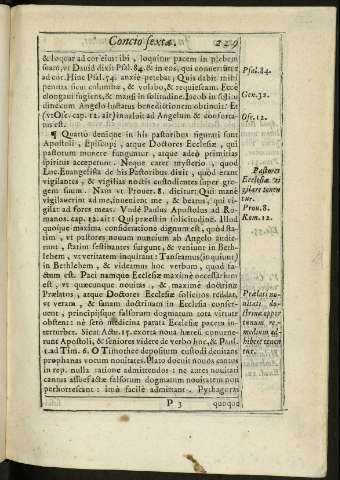 Concio sexta. 229
& loquar ad cor eius tibi, loquitur pacem in plebem
suam, vt Dauid dixit Psal. 84. & in eos, qui conuertuntur
ad cor. Hinc Psal. 54. anxiè petebat; Quis dabit mihi
pennas sicut columbæ, & volabo, & requiescam. Ecce
elongaui fugiens, & mansi in solitudine. Iacob in solitu
dine cum Angelo luctatus benedictionem obtinuit. Et
(vt Ose. cap. 12. ait) inualuit ad Angelum & confortatus
est.
¶ Quartò denique in his pastoribus figurati sunt
Apostoli, Episcopi, atque Doctores Ecclesiæ, qui
pastorum munere funguntur, atque adeò primitias
spiritus acceperunt. Neque caret mysterio, quod
Luc. Euangelista de his Pastoribus dixit, quòd erant
vigilantes, & vigilias noctis custodientes super gregem
suum. Nam vt Prouer. 8. dicitur: Qui manè
vigilauerint ad me, inuenient me, & beatus, qui vigilat
ad fores meas. Vndè Paulus Apostolus ad Romanos.
cap. 12. ait: Qui præest in solicitudine. Illud
quoque maxima consideratione dignum est, quòd statim,
vt pastores nouum nuncium ab Angelo audierunt,
statim festinantes surgunt, & veniunt in Bethlehem,
vt veritatem inquirant: Transeamus (inquiunt)
in Bethlehem, & videamus hoc verbum, quod factum
est. Paci namque Ecclesiæ maximè necessarium
est, vt quæcunque nouitas, & maximè doctrinæ
Prælatos, atque Doctores Ecclesiæ solicitos reddat,
vt veram, & sanam doctrinam in Ecclesia conseruent,
principijsque falsorum dogmatum tota virtute
obstent: nè serò medicina parata Ecclesiæ pacem interturbet.
Sicut Actu. 15. exorta noua hæresi conuenerunt
Apostoli, & seniores videre de verbo hoc, & Paul.
1. ad Tim. 6. O Timothee depositum custodi deuitans
prophanas vocum nouitates. Plato docuit nouos cantus
in rep. nulla ratione admittendos: nè aures nouitati
cantus assuefactæ falsorum dogmatum nouitatem non
perhorrescant: imò facilè admittant. Pythagoras
P 3 quoque
Psal. 84.
Gen. 32.
Ose. 12.
Pastores
Ecclesiæ vi
gilare tenen
tur.
Prou. 8.
Rom. 12.
Prælati no-
uitati do-
ctrinæ oppor
tunum re-
medium ad-
hibere tenen
tur.